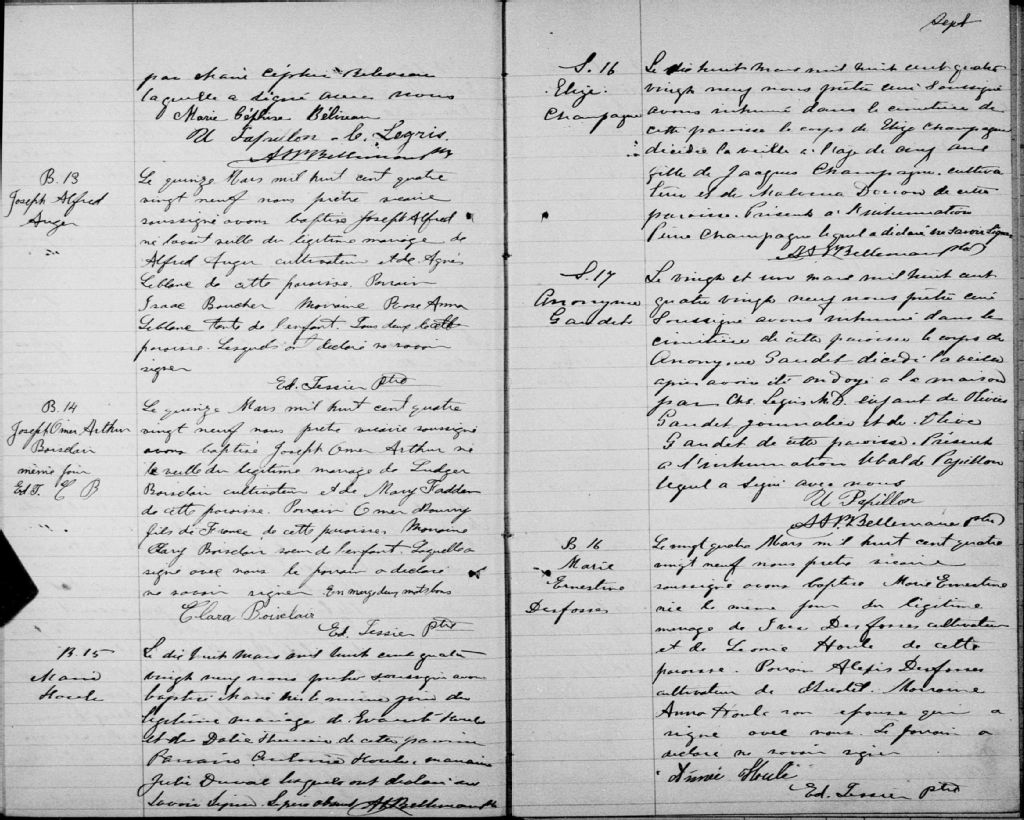 par Marie Céphise Beliveau
laquelle a signé avec nous
Marie Céphise Béliveau
U Papillon - C. Legris.
B. 13
Joseph Alfred
Auger
Le quinze Mars mil huit cent quatre
vingt neuf nous prêtre vicaire
soussigné avons baptisé Joseph Alfred
né la veille du légitime mariage de
Alfred Auger cultivateur et de Agnes
Leblanc de cette paroisse. Parrain
Isaac Boucher Marraine Rose Anna
Leblanc tante de l'enfant. Tous deux de cette
paroisse. Lesquels ont déclaré ne savoir
signer
Ed. Tessier ptre
B. 14
Joseph Omer Arthur
Boisclair
même jour
Ed T. C B
Le quinze Mars mil huit cent quatre
vingt neuf nous prêtre vicaire soussigné
avons baptisé Joseph Omer Arthur né
la veille du légitime mariage de Ludger
Boisclair cultivateur et de Mary Fadden
de cette paroisse. Parrain Omer
fils de France de cette paroisse. Marraine
Clary Boisclair soeur de l'enfant. Laquelle a
signé avec nous le parrain a déclaré
ne savoir signer En marge deux mots bons
Clara Boisclair
Ed. Tessier ptre
B 15
Marie
Houle
Le dix huit Mars mil huit cent quatre
vingt neuf nous prêtre soussigné avons
baptisé Marie née le même jour du
légitime mariage de Evariste Houle
et de Délia de cette paroisse
Parrain Antoine Houle, marraine
Julie Duval lesquels ont déclaré ne
savoir signer. Le père absent A P Bellemare ptre
Sept
S. 16
Elize
Champagne
Le dix huit Mars mil huit cent quatre
vingt neuf nous prêtre curé soussigné
avons inhumé dans le cimetière de
cette paroisse le corps de Elize Champagne
décédée la veille à l'age de cinq ans
fille de Jacques Champagne cultiva
teur et de Malvina de cette
paroisse. Présent à l'inhumation
Pierre Champagne lequel a déclaré ne savoir signer
Bellemare ptre
S. 17
Anonyme
Gaudet
Le vingt et un mars mil huit cent
quatre vingt neuf nous prêtre curé
soussigné avons inhumé dans le
cimetière de cette paroisse le corps de
Anonyme Gaudet décédé la veille
après avoir été ondoyé à la maison
par Chs. Legris M.D. enfant de Olivier
Gaudet journalier et de Olive
Gaudet de cette paroisse. Présent
à l'inhumation Ubalde Papillon
lequel a signé avec nous
U Papillon
Bellemare ptre
B 16
Marie
Ernestine
Desfosses
Le vingt quatre Mars mil huit cent quatre
vingt neuf nous prêtre vicaire
soussigné avons baptisé Marie Ernestine
née le même jour du légitime
mariage de Desfosses cultivateur
et de Leonie Houle de cette
paroisse. Parrain Alexis Desfosses
cultivateur de Marraine
Anna Houle son épouse qui a
signé avec nous. Le parrain a
déclaré ne savoir signer
Annie Houle
Ed. Tessier ptre